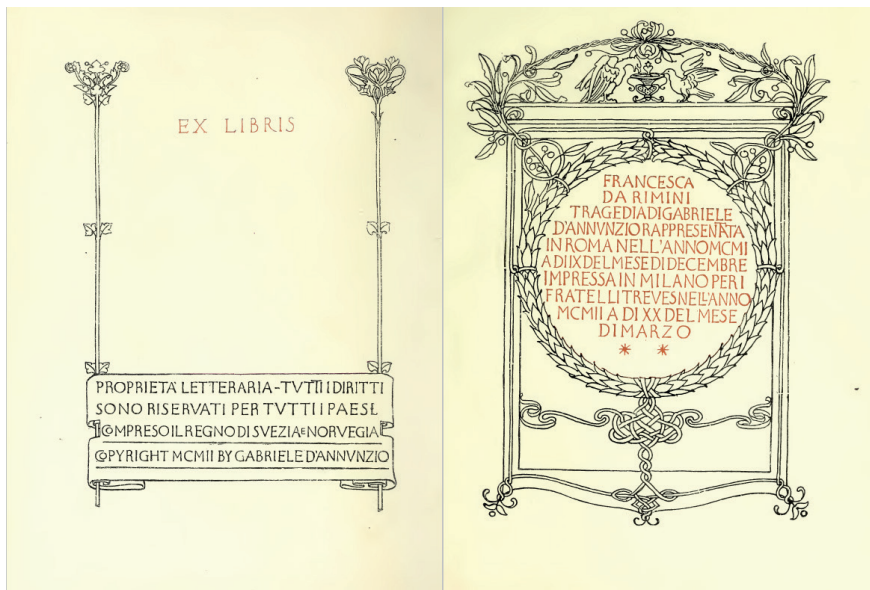 EX LIBRIS
PROPRIETÀ LETTERARIA-TVTTI I DIRITTI
SONO RISERVATI PER TVTTI I PAESI,
COMPRESO IL REGNO DI SVEZIA E NORVEGIA
COPYRIGHT MCMII BY GABRIELE D'ANNVNZIO
FRANCESCA
DA RIMINI
TRAGEDIA DI GABRIELE
D'ANNVNZIO RAPPRESENTATA
IN ROMA NELL'ANNO MCMI
A DI IX DEL MESE DI DECEMBRE
IMPRESSA IN MILANO PER I
FRATELLI TREVES NELL'ANNO
MCMII A DI XX DEL MESE
DI MARZO
* *